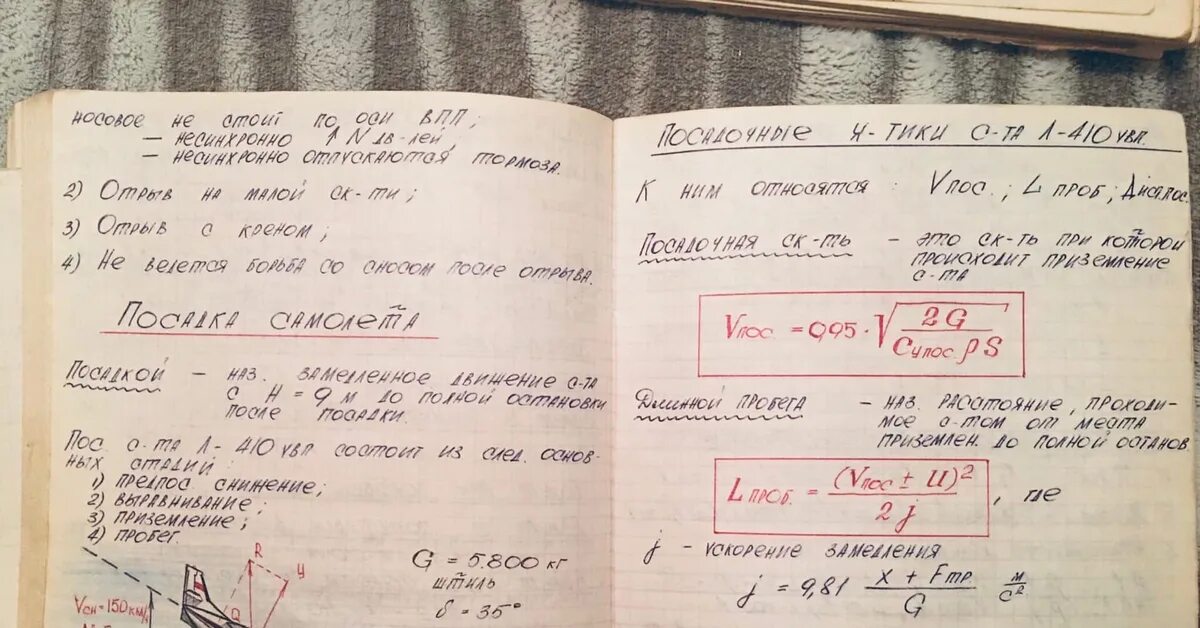 носовое не стоит по оси ВПП;
— несинхронно ↑ N дв-лей,
— несинхронно отпускаются тормоза.
2) Отрыв на малой ск-ти;
3) Отрыв с креном;
4) Не ведется борьба со сносом после отрыва.
Посадка самолета
Посадкой — наз. замедленное движение с-та
с H = 9 м до полной остановки
после посадки.
Пос. с-та Л-410 увп состоит из след. основ-
ных стадий:
1) предпос. снижение;
2) выравнивание;
3) приземление;
4) пробег.
R
y
Q
Vсн=150 км/
G = 5.800 кг
штиль
δ = 35°
Посадочные х-тики с-та Л-410 увп.
К ним относятся: Vпос.; L проб;
Посадочная ск-ть — это ск-ть при которой
происходит приземление
с-та
Vпос. = 0,95 · √ 2G / Cyпос. ρ S
Длинной пробега — наз. расстояние, проходи-
мое с-том от места
приземлен. до полной останов
L проб. = (Vпос ± U)² / 2j , где
j — ускорение замедления
j = 9,81 X + Fтр. / G м/с²